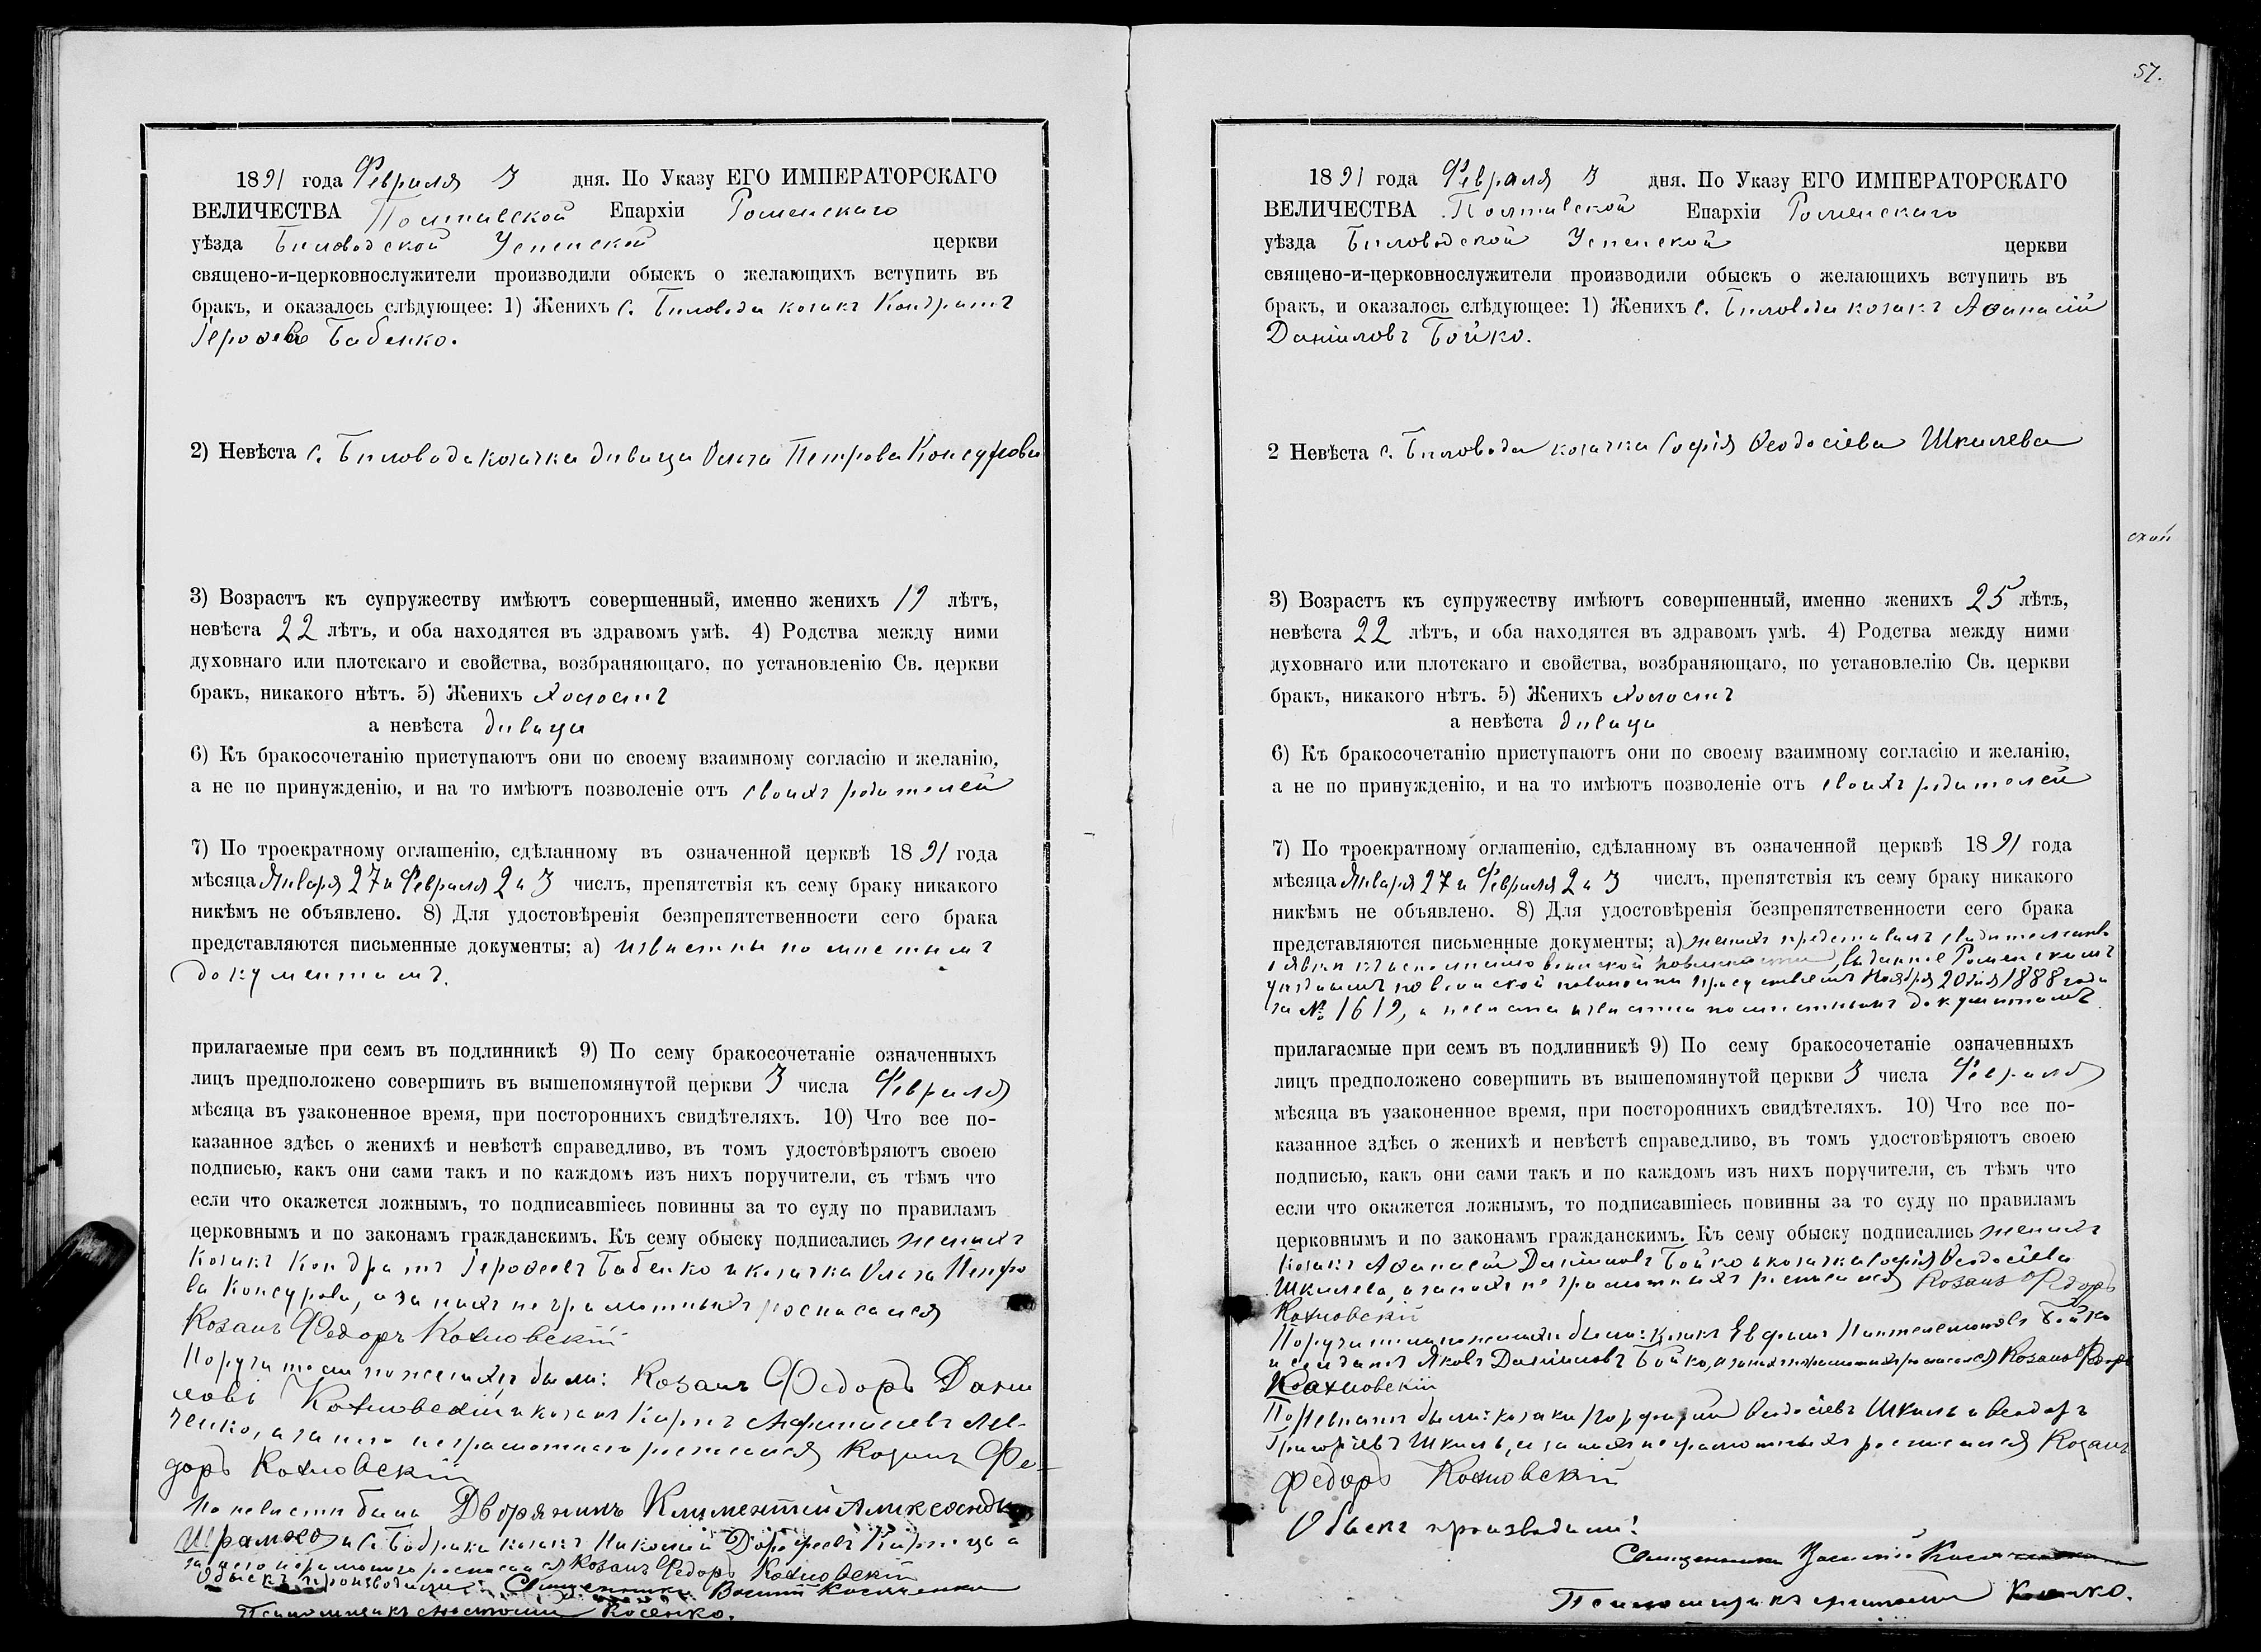 1891 года Февраля 3 дня. По Указу ЕГО ИМПЕРАТОРСКАГО
ВЕЛИЧЕСТВА Полтавской Епархіи Роменскаго
уѣзда Биловодской Успенской церкви
священо-и-церковнослужители производили обыскъ о желающихъ вступить въ
бракъ, и оказалось слѣдующее: 1) Женихъ с. Биловода козакъ Кондратъ
Бабенко.
2) Невѣста с. Биловода козачка дивица Ольга Петрова Консурова
3) Возрастъ къ супружеству имѣютъ совершенный, именно женихъ 19 лѣтъ,
невѣста 22 лѣтъ, и оба находятся въ здравомъ умѣ. 4) Родства между ними
духовнаго или плотскаго и свойства, возбраняющаго, по установленію Св. церкви
бракъ, никакого нѣтъ. 5) Женихъ холостъ
а невѣста дивица
6) Къ бракосочетанію приступаютъ они по своему взаимному согласію и желанію,
а не по принужденію, и на то имѣютъ позволеніе отъ своихъ родителей
7) По троекратному оглашенію, сдѣланному въ означенной церквѣ 1891 года
мѣсяца Января 27 и Февраля 2 и 3 числъ, препятствія къ сему браку никакого
никѣмъ не объявлено. 8) Для удостовѣренія безпрепятственности сего брака
представляются письменные документы; а) извистны по мистнымъ
документамъ.
прилагаемые при семъ въ подлинникѣ 9) По сему бракосочетаніе означенныхъ
лицъ предположено совершить въ вышепомянутой церкви 3 числа Февраля
мѣсяца въ узаконенное время, при постороннихъ свидѣтеляхъ. 10) Что все по-
казанное здѣсь о женихѣ и невѣстѣ справедливо, въ томъ удостовѣряютъ своею
подписью, какъ они сами такъ и по каждомъ изъ нихъ поручители, съ тѣмъ что
если что окажется ложнымъ, то подписавшіесь повинны за то суду по правиламъ
церковнымъ и по законамъ гражданскимъ. Къ сему обыску подписались женихъ
козакъ Кондратъ Бабенко и козачка Ольга Петро
ва Консурова, а за нихъ неграмотныхъ росписался
Козакъ Федоръ Кохновскій
Поручители по женихи были: Козакъ Федоръ Дани
ловъ Кохновскій и козакъ Карпъ Лев-
ченко, а за него неграмотнаго росписался Козакъ Фе-
доръ Кохновскій
По невисти были Дворянинъ Климентій
Шрамко и с. Бобрика козакъ Николай Дорофеевъ а
за него неграмотнаго росписался Козакъ Федоръ Кохновскій
Обыскъ производили: Священникъ Василій
Псаломщикъ Косенко.
57.
1891 года Февраля 3 дня. По Указу ЕГО ИМПЕРАТОРСКАГО
ВЕЛИЧЕСТВА Полтавской Епархіи Роменскаго
уѣзда Биловодской Успенской церкви
священо-и-церковнослужители производили обыскъ о желающихъ вступить въ
бракъ, и оказалось слѣдующее: 1) Женихъ с. Биловода козакъ Аѳанасій
Даніиловъ Бойко.
2 Невѣста с. Биловода козачка Софія Ѳеодосіева Шкилева
ской
3) Возрастъ къ супружеству имѣютъ совершенный, именно женихъ 25 лѣтъ,
невѣста 22 лѣтъ, и оба находятся въ здравомъ умѣ. 4) Родства между ними
духовнаго или плотскаго и свойства, возбраняющаго, по установлелію Св. церкви
бракъ, никакого нѣтъ. 5) Женихъ холостъ
а невѣста дивица
6) Къ бракосочетанію приступаютъ они по своему взаимному согласію и желанію,
а не по принужденію, и на то имѣютъ позволеніе отъ своихъ родителей
7) По троекратному оглашенію, сдѣланному въ означенной церквѣ 1891 года
мѣсяца Января 27 и Февраля 2 и 3 числъ, препятствія къ сему браку никакого
никѣмъ не объявлено. 8) Для удостовѣренія безпрепятственности сего брака
представляются письменные документы; а) женихъ представилъ свидительство
о явки къ исполненію воинской повинности, выданное Роменскимъ
уизднымъ по воинской повинности присутствіемъ Ноября 20 дня 1888 года
за № 1619, а невиста извистна по мистнымъ документамъ
прилагаемые при семъ въ подлинникѣ 9) По сему бракосочетаніе означенныхъ
лицъ предположено совершить въ вышепомянутой церкви 3 числа Февраля
мѣсяца въ узаконенное время, при постороннихъ свидѣтеляхъ. 10) Что все по-
казанное здѣсь о женихѣ и невѣстѣ справедливо, въ томъ удостовѣряютъ своею
подписью, какъ они сами такъ и по каждомъ изъ нихъ поручители, съ тѣмъ что
если что окажется ложнымъ, то подписавшіесь повинны за то суду по правиламъ
церковнымъ и по законамъ гражданскимъ. Къ сему обыску подписались женихъ
козакъ Аѳанасій Даніиловъ Бойко и козачка Софія Ѳеодосіева
Шкилева, а за нихъ неграмотныхъ росписался Козакъ Федоръ
Кохновскій
Поручители по женихи были: козакъ Евфимъ Пантелеимоновъ Бойко
и солдатъ Яковъ Даніиловъ Бойко, а за нихъ неграмотныхъ росписался Козакъ Федоръ
Кохновскій
По невисти были: козаки Порфирій Ѳеодосіевъ Шкиль и Ѳеодоръ
Григоріевъ Шкиль, а за нихъ неграмотныхъ росписался Козакъ
Федоръ Кохновскій
Обыскъ производили:
Священникъ Василій
Псаломщикъ